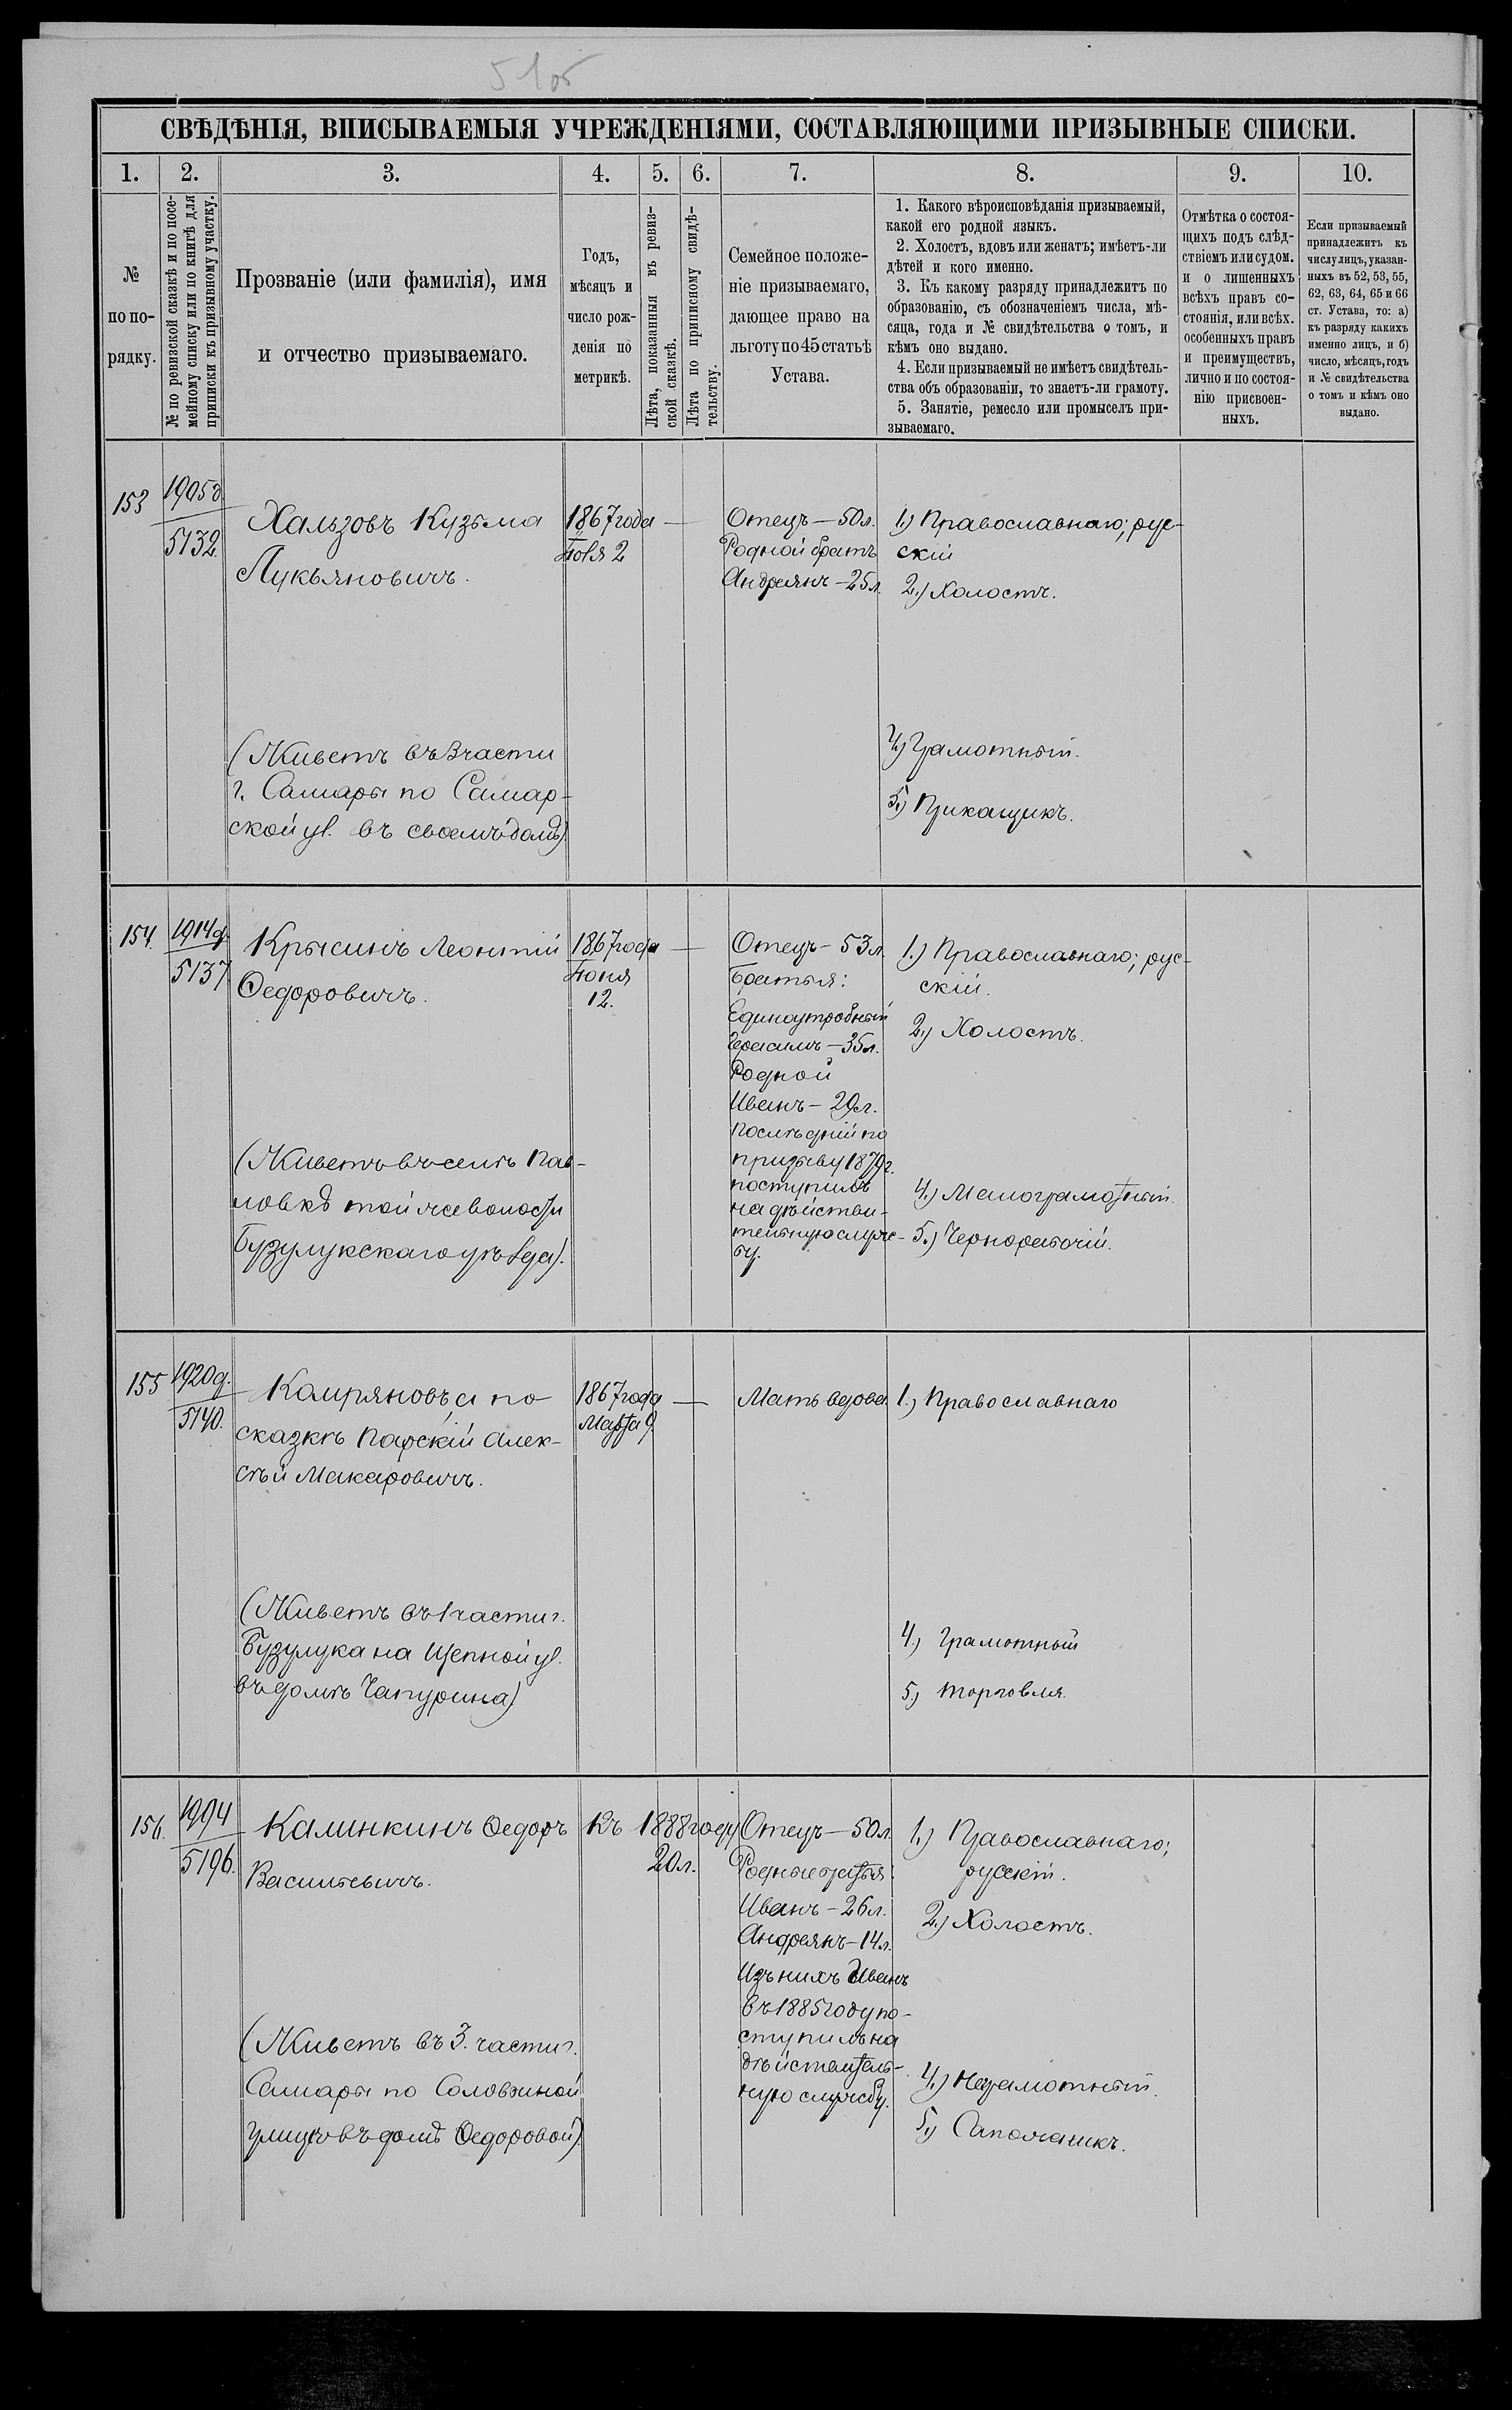 51об
СВѢДѢНІЯ, ВПИСЫВАЕМЫЯ УЧРЕЖДЕНІЯМИ, СОСТАВЛЯЮЩИМИ ПРИЗЫВНЫЕ СПИСКИ.
1. 2. 3. 4. 5. 6. 7. 8. 9. 10.
№
по по-
рядку.
№ по ревизской сказкѣ и по посе-
мейному списку или по книгѣ для
приписки къ призывному участку.
Прозваніе (или фамилія), имя
и отчество призываемаго.
Годъ,
мѣсяцъ и
число рож-
денія по
метрикѣ.
Лѣта, показанныя въ ревиз-
ской сказкѣ.
Лѣта по приписному свидѣ-
тельству.
Семейное положе-
ніе призываемаго,
дающее право на
льготу по 45 статьѣ
Устава.
1. Какого вѣроисповѣданія призываемый,
какой его родной языкъ.
2. Холостъ, вдовъ или женатъ; имѣетъ-ли
дѣтей и кого именно.
3. Къ какому разряду принадлежитъ по
образованію, съ обозначеніемъ числа, мѣ-
сяца, года и № свидѣтельства о томъ, и
кѣмъ оно выдано.
4. Если призываемый не имѣетъ свидѣтель-
ства объ образованіи, то знаетъ-ли грамоту.
5. Занятіе, ремесло или промыселъ при-
зываемаго.
Отмѣтка о состоя-
щихъ подъ слѣд-
ствіемъ или судомъ.
и о лишенныхъ
всѣхъ правъ со-
стоянія, или всѣх.
особенныхъ правъ
и преимуществъ,
лично и по состоя-
нію присвоен-
ныхъ.
Если призываемый
принадлежитъ къ
числу лицъ, указан-
ныхъ въ 52, 53, 55,
62, 63, 64, 65 и 66
ст. Устава, то: а)
къ разряду какихъ
именно лицъ, и б)
число, мѣсяцъ, годъ
и № свидѣтельства
о томъ и кѣмъ оно
выдано.
153
1905д.
5132.
Хальзовъ Кузьма
Лукьяновичъ.
(Живетъ въ 3 части
г. Самары по Самар-
ской ул. въ своемъ домѣ)
1867 года
2
Отецъ — 50 л.
Родной братъ
Андреянъ — 25 л.
1.) Православнаго; рус-
скій
2.) Холостъ.
4) Грамотный.
5.) Прикащикъ.
154.
1914д.
5137
Крысинъ Леонтій
Федоровичъ.
(Живетъ въ селѣ Пав-
ловкѣ той же волости
Бузулукскаго уѣзда).
1867 года
Іюня
12.
Отецъ — 53 л.
Братья:
Единоутробный
Герасимъ — 35 л.
Родной
Иванъ — 29 л.
Послѣдній по
призыву 1879 г.
поступилъ
на дѣйстви-
тельную служ-
бу.
1.) Православнаго; рус-
скій.
2.) Холостъ.
4.) Малограмотный.
5.) Чернорабочій.
155
1920д.
5140.
а по
сказкѣ Парскій Алек-
сѣй Макаровичъ.
(Живетъ въ 1 части г.
Бузулука на Щепной ул.
въ домѣ Чапурина)
1867 года
Марта 9
Мать вдова.
1.) Православнаго
4.) Грамотный
5.) Торговля.
156.
1994
5196.
Калинкинъ Федоръ
Васильевичъ.
(Живетъ въ 3. части г.
Самары по
улицѣ въ домѣ Федоровой)
Къ 1888 году
20 л.
Отецъ — 50 л.
Родные братья:
Иванъ — 26 л.
Андреянъ — 14 л.
Изъ нихъ Иванъ
въ 1885 году по-
ступилъ на
дѣйствитель-
ную службу.
1.) Православнаго;
русскій.
2.) Холостъ.
4.) Неграмотный.
5.) Сапожникъ.